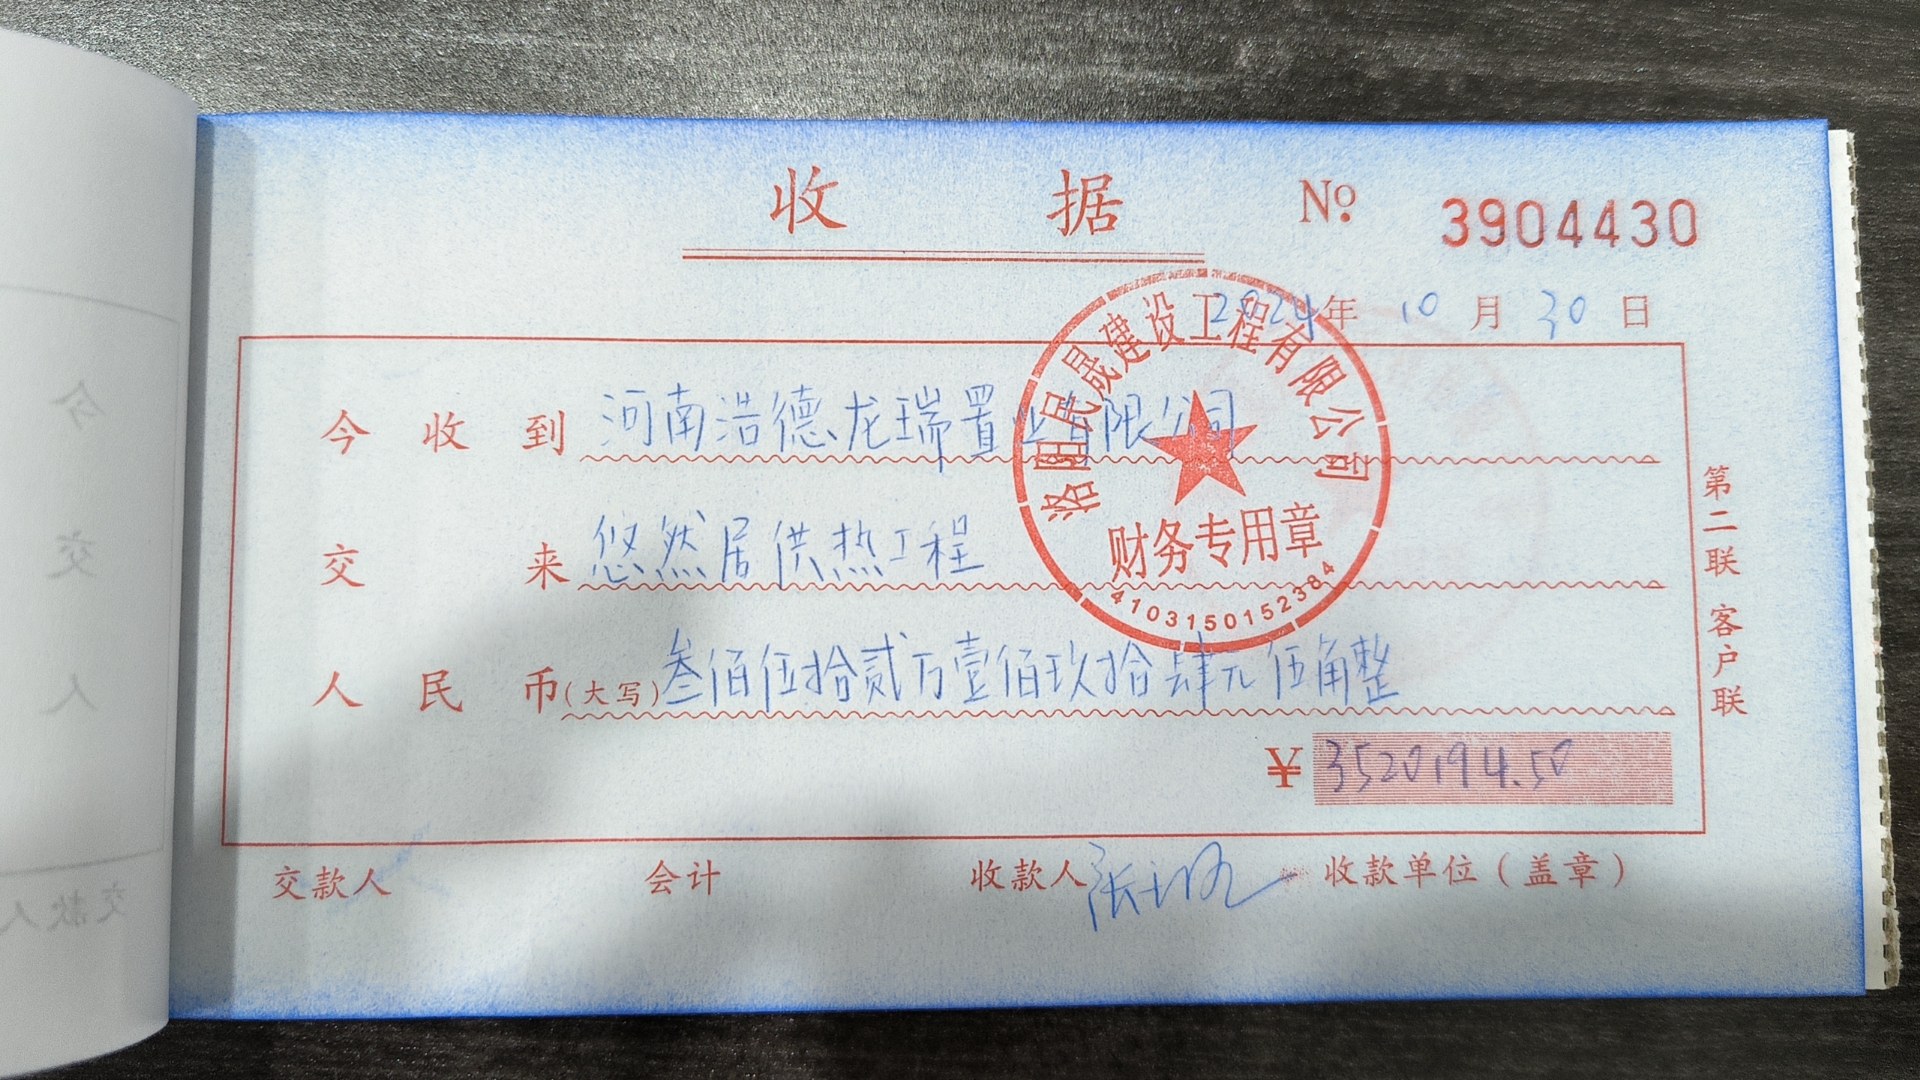 收据 No. 3904430
2024年10月30日
今收到 河南浩德龙瑞置业有限公司
交来 悠然居供热工程
人民币(大写)叁佰伍拾贰万壹佰玖拾肆元伍角整
¥3520194.50
交款人 会计 收款人 收款单位(盖章)
第二联 客户联
洛阳民晟建设工程有限公司
财务专用章
4103150152384
今
交
人
交款人